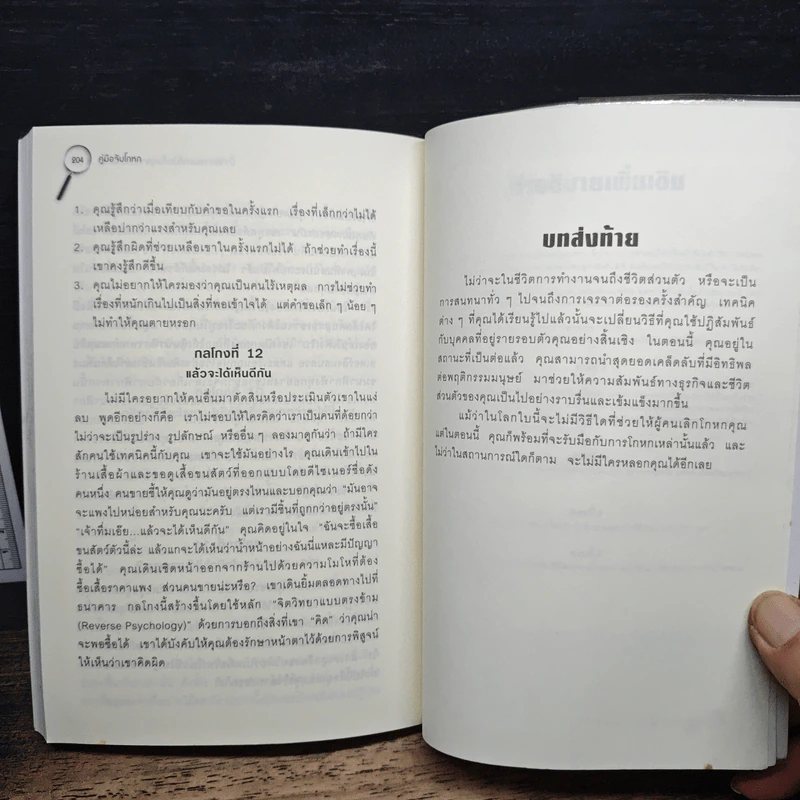 204
คู่มือจับโกหก
1. คุณรู้สึกว่าเมื่อเทียบกับคำขอในครั้งแรก เรื่องที่เล็กกว่าไม่ได้
เหลือบ่ากว่าแรงสำหรับคุณเลย
2. คุณรู้สึกผิดที่ช่วยเหลือเขาในครั้งแรกไม่ได้ ถ้าช่วยทำเรื่องนี้
เขาคงรู้สึกดีขึ้น
3. คุณไม่อยากให้ใครมองว่าคุณเป็นคนไร้เหตุผล การไม่ช่วยทำ
เรื่องที่หนักเกินไปเป็นสิ่งที่พอเข้าใจได้ แต่คำขอเล็ก ๆ น้อย ๆ
ไม่ทำให้คุณตายหรอก
กลโกงที่ 12
แล้วจะได้เห็นดีกัน
ไม่มีใครอยากให้คนอื่นมาตัดสินหรือประเมินตัวเขาในแง่
ลบ พูดอีกอย่างก็คือ เราไม่ชอบให้ใครคิดว่าเราเป็นคนที่ด้อยกว่า
ไม่ว่าจะเป็นรูปร่าง รูปลักษณ์ หรืออื่น ๆ ลองมาดูกันว่า ถ้ามีใคร
สักคนใช้เทคนิคนี้กับคุณ เขาจะใช้มันอย่างไร คุณเดินเข้าไปใน
ร้านเสื้อผ้าและขอดูเสื้อขนสัตว์ที่ออกแบบโดยดีไซเนอร์ชื่อดัง
คนหนึ่ง คนขายชี้ให้คุณดูว่ามันอยู่ตรงไหนและบอกคุณว่า "มันอาจ
จะแพงไปหน่อยสำหรับคุณนะครับ แต่เรามีชิ้นที่ถูกกว่าอยู่ตรงนั้น"
"เจ้าทึ่มเอ๊ย...แล้วจะได้เห็นดีกัน" คุณคิดอยู่ในใจ "ฉันจะซื้อเสื้อ
ขนสัตว์ตัวนี้ล่ะ แล้วแกจะได้เห็นว่าน้ำหน้าอย่างฉันนี่แหละมีปัญญา
ซื้อได้" คุณเดินเชิดหน้าออกจากร้านไปด้วยความโมโหที่ต้อง
ซื้อเสื้อราคาแพง ส่วนคนขายน่ะหรือ? เขาเดินยิ้มตลอดทางไปที่
ธนาคาร กลโกงนี้สร้างขึ้นโดยใช้หลัก "จิตวิทยาแบบตรงข้าม
(Reverse Psychology)" ด้วยการบอกถึงสิ่งที่เขา "คิด" ว่าคุณน่า
จะพอซื้อได้ เขาได้บังคับให้คุณต้องรักษาหน้าตาไว้ด้วยการพิสูจน์
ให้เห็นว่าเขาคิดผิด
บทส่งท้าย
ไม่ว่าจะในชีวิตการทำงานจนถึงชีวิตส่วนตัว หรือจะเป็น
การสนทนาทั่ว ๆ ไปจนถึงการเจรจาต่อรองครั้งสำคัญ เทคนิค
ต่าง ๆ ที่คุณได้เรียนรู้ไปแล้วนั้นจะเปลี่ยนวิธีที่คุณใช้ปฏิสัมพันธ์
กับบุคคลที่อยู่รายรอบตัวคุณอย่างสิ้นเชิง ในตอนนี้ คุณอยู่ใน
สถานะที่เป็นต่อแล้ว คุณสามารถนำสุดยอดเคล็ดลับที่มีอิทธิพล
ต่อพฤติกรรมมนุษย์ มาช่วยให้ความสัมพันธ์ทางธุรกิจและชีวิต
ส่วนตัวของคุณเป็นไปอย่างราบรื่นและเข้มแข็งมากขึ้น
แม้ว่าในโลกใบนี้จะไม่มีวิธีใดที่ช่วยให้ผู้คนเลิกโกหกคุณ
แต่ในตอนนี้ คุณก็พร้อมที่จะรับมือกับการโกหกเหล่านั้นแล้ว และ
ไม่ว่าในสถานการณ์ใดก็ตาม จะไม่มีใครหลอกคุณได้อีกเลย